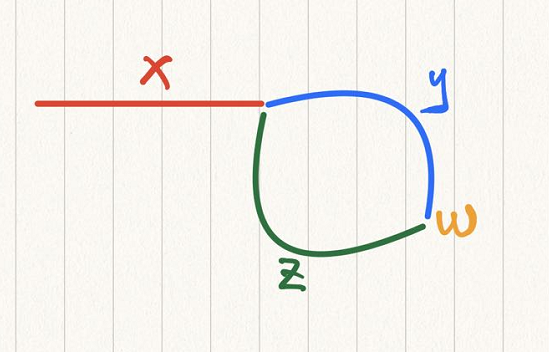 x
y
w
z